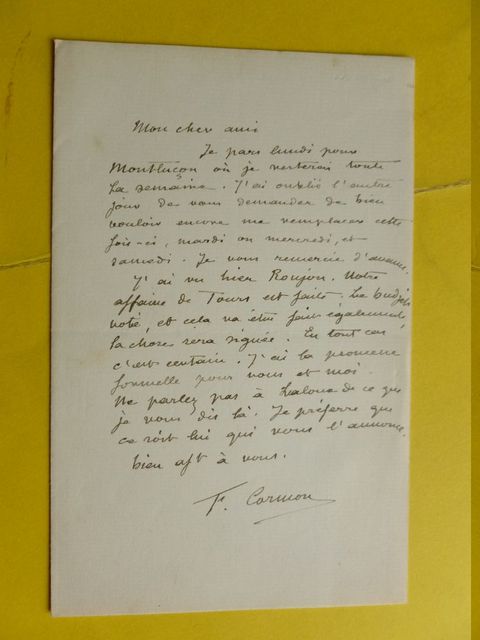 Mon cher ami
Je pars lundi pour
Montluçon où je resterai toute
la semaine. J'ai oublié l'autre
jour de vous demander de bien
vouloir encore me remplacer cette
fois-ci, mardi ou mercredi, et
samedi. Je vous remercie d'avance.
J'ai vu hier Roujon. Notre
affaire de Tours est faite. Le budget
voté, et cela va être fait également
la chose sera signée. En tout cas
c'est certain. J'ai la promesse
formelle pour vous et moi.
Ne parlez pas à Lalou de ce que
je vous dis là. Je préfère que
ce soit lui qui vous l'annonce.
bien aft à vous.
F. Cormon